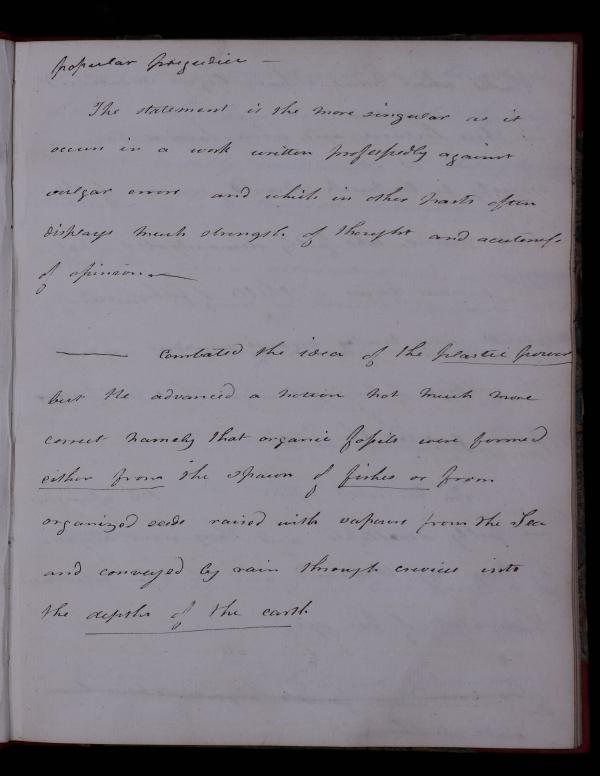 popular prejudice —
The statement is the more singular as it
occurs in a work written professedly against
vulgar errors and which in other parts often
displays much strength of thought and acuteness
of opinion —
—— combated the idea of the plastic power
but he advanced a notion not much more
correct namely that organic fossils were formed
either from the spawn of fishes or from
organized seeds raised with vapours from the Sea
and conveyed by rain through crevices into
the depths of the earth